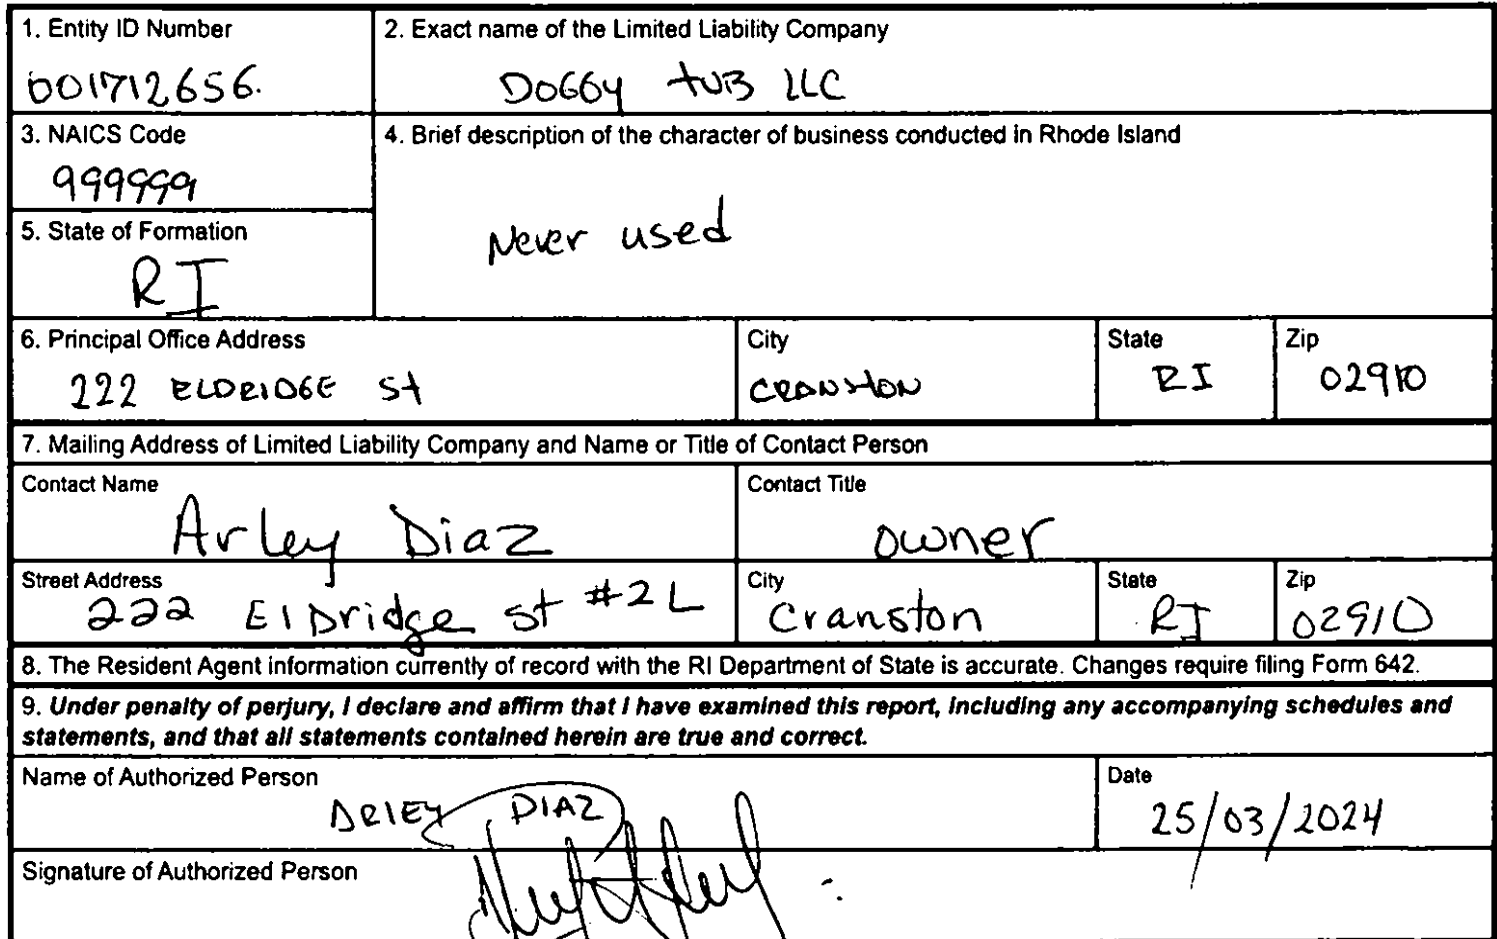 1. Entity ID Number
001712656.
2. Exact name of the Limited Liability Company
DOGGY tUB LLC
3. NAICS Code
999999
4. Brief description of the character of business conducted in Rhode Island
Never used
5. State of Formation
RI
6. Principal Office Address
222 ELDRIDGE St
City
CRANStON
State
RI
Zip
02910
7. Mailing Address of Limited Liability Company and Name or Title of Contact Person
Contact Name
Arley Diaz
Contact Title
owner
Street Address
222 ElDridge st #2L
City
Cranston
State
RI
Zip
02910
8. The Resident Agent information currently of record with the RI Department of State is accurate. Changes require filing Form 642.
9. Under penalty of perjury, I declare and affirm that I have examined this report, including any accompanying schedules and
statements, and that all statements contained herein are true and correct.
Name of Authorized Person
ARLEY DIAZ
Date
25/03/2024
Signature of Authorized Person